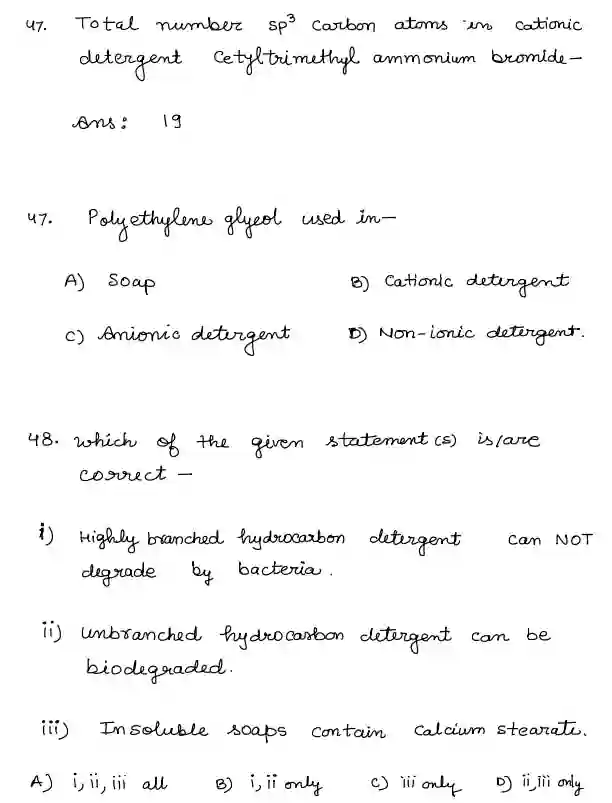 47. Total number sp³ carbon atoms in cationic
detergent Cetyltrimethyl ammonium bromide–
Ans: 19
47. Polyethylene glycol used in–
A) Soap B) Cationic detergent
C) Anionic detergent D) Non-ionic detergent.
48. which of the given statement(s) is/are
correct –
i) Highly branched hydrocarbon detergent can NOT
degrade by bacteria.
ii) unbranched hydrocarbon detergent can be
biodegraded.
iii) Insoluble soaps contain calcium stearate.
A) i, ii, iii all B) i, ii only C) iii only D) ii, iii only